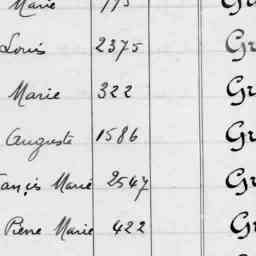 Marie
Louis 2375 Gr
Marie 322 Gr
Auguste 1586 Gr
ançis Marie 2547 Gr
Pierre Marie 422 Gr